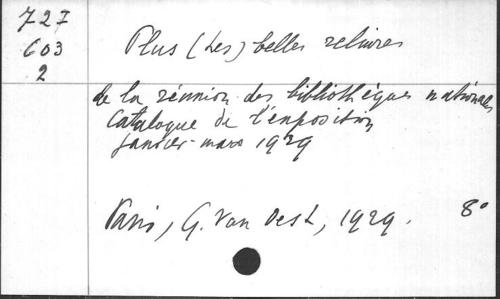 727
603
2
Plus (Les) belles reliures
de la réunion des bibliothèques nationales
Catalogue de l'exposition
janvier-mars 1929
Paris, G. Van Oest, 1929. 8°